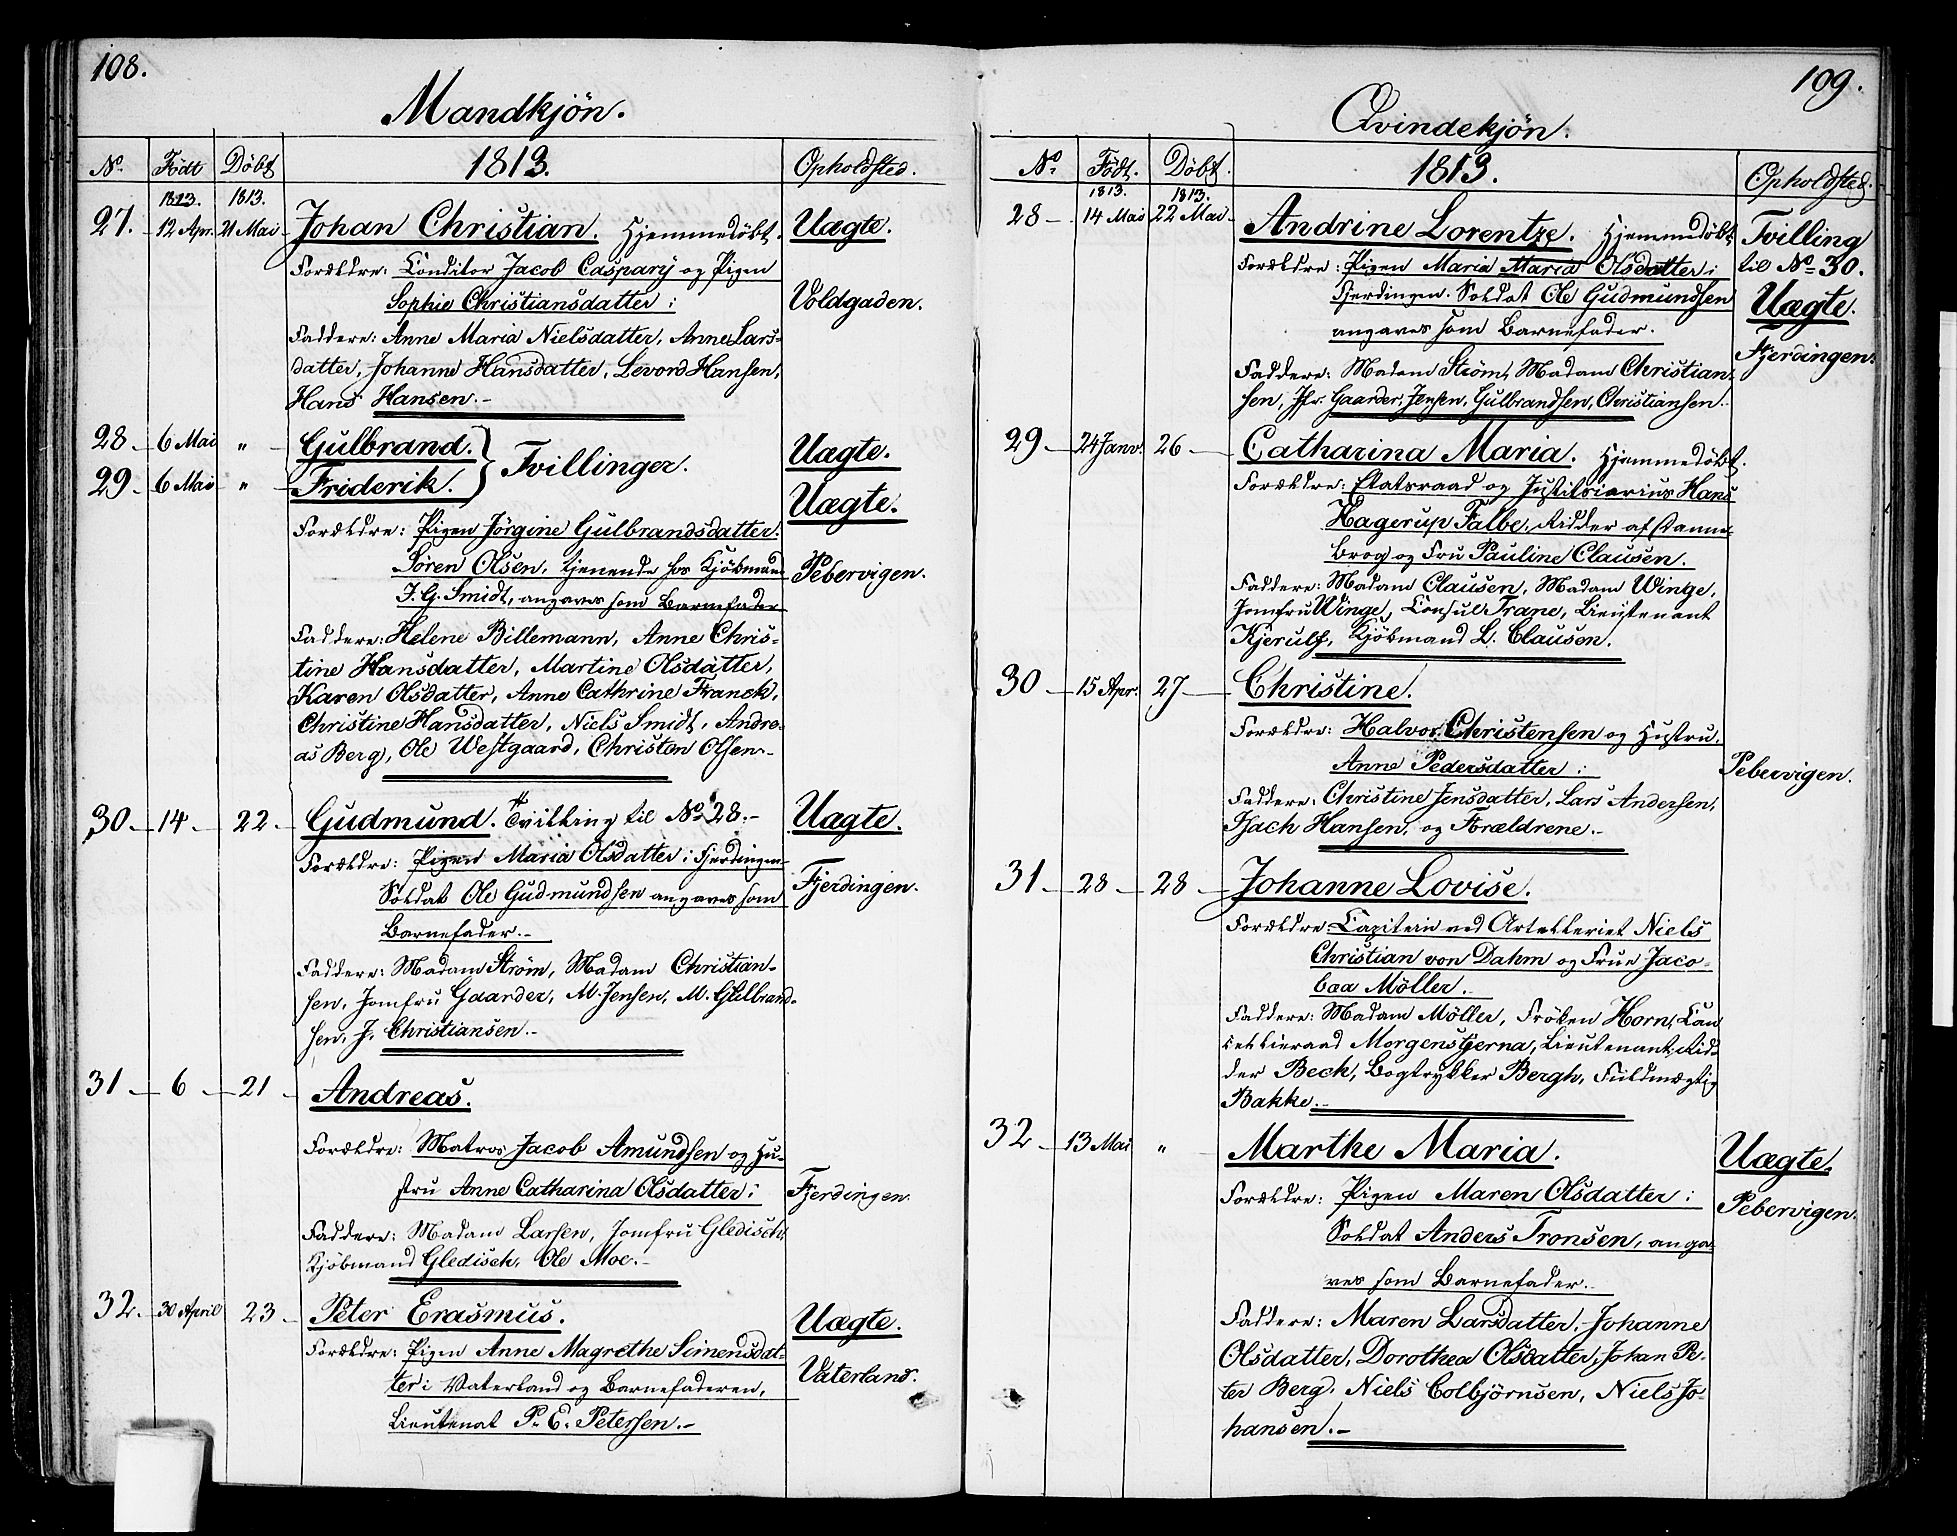 108.
Mandkjön.
No. Födt Döbt 1813. Opholdsted.
1813. 1813.
27. 12 Apr. 21 Mai Johan Christian. Hjemmedöbt. Uægte.
Forældre: Conditor Jacob Caspary og Pigen
Sophie Christiansdatter: Voldgaden.
Faddere: Anne Maria Nielsdatter, Anne Lars-
datter, Johanne Hansdatter, Levord Hansen,
Hans Hansen.-
28 - 6 Mai " Gulbrand. } Tvillinger. Uægte.
29 - 6 Mai " Friderik. Uægte.
Forældre: Pigen Jörgine Gulbrandsdatter.
Sören Olsen, tjenende hos Kjöbmand Pebervigen.
J. G. Smidt, angaves som Barnefader
Faddere: Helene Billemann, Anne Chris-
tine Hansdatter, Martine Olsdatter,
Karen Olsdatter, Anne Cathrine Franck,
Christine Hansdatter, Niels Smidt, Andre-
as Berg, Ole Westgaard, Christen Olsen.-
30 - 14 - 22 - Gudmund. Tvilling til No 28.- Uægte.
Forældre: Pigen Maria Olsdatter: Fjerdingen-
Soldat Ole Gudmundsen angaves som Fjerdingen.
Barnefader.-
Faddere: Madam Ström, Madam Christian-
sen, Jomfru Gaarder, M. Jensen, M. Gulbrand-
sen, J. Christiansen.-
31 - 6 - 21 - Andreas.
Forældre: Matros Jacob Amundsen og Hu-
stru Anne Catharina Olsdatter: Fjerdingen.
Faddere: Madam Larsen, Jomfru Gledisch,
Kjöbmand Gledisch, Ole Moe.-
32. 30 April 23 - Peter Erasmus. Uægte.
Forældre: Pigen Anne Magrethe Simensdat-
ter: Vaterland og Barnefaderen, Vaterland.
Lieutenat P. E. Petersen.-
109.
Qvindekjön.
No. Födt. Döbt. 1813. Opholdsted.
1813. 1813.
28 - 14 Mai 22 Mai - Andrine Lorentze. Hjemmedöbt Tvilling
Forældre: Pigen Maria Maria Olsdatter: til No 30.
Fjerdingen. Soldat Ole Gudmundsen Uægte.
angaves som Barnefader. Fjerdingen.
Faddere: Madam Ström, Madam Christian-
sen, Jfr. Gaarder, Jensen, Gulbrandsen, Christiansen.
29 - 24 Janv. 26 - Catharina Maria. Hjemmedöbt.
Forældre: Etatsraad og Justitsiarius Hans
Hagerup Falbe, Ridder af Danne-
brog og Fru Pauline Clausen.
Faddere: Madam Clausen, Madam Winge,
Jomfru Winge, Consul Trane, Lieutenant
Kjerulf, Kjöbmand L. Clausen.
30 - 15 Apr. 27 - Christine.
Forældre: Halvor Christensen og Hustru,
Anne Pedersdatter: Pebervigen.
Faddere: Christine Jensdatter, Lars Andersen,
Isach Hansen, og Forældrene.-
31 - 28 - 28 - Johanne Lovise.
Forældre: Capitein ved Artelleriet Niels
Christian von Dahm og Frue Jaco-
baa Möller.-
Faddere: Madam Möller, Fröken Horn, Can
cellieraad Morgenstjerna, Lieutenant, Rid-
der Beck, Bogtrykker Bergh, Fuldmægtig
Bakke.-
32 - 13 Mai " Marthe Maria. Uægte.
Forældre: Pigen Maren Olsdatter: Pebervigen.
Soldat Anders Tronsen, anga-
ves som Barnefader.-
Faddere: Maren Larsdatter, Johanne
Olsdatter, Dorothea Olsdatter, Johan Pe-
ter Berg, Niels Colbjörnsen, Niels Jo-
hansen.-